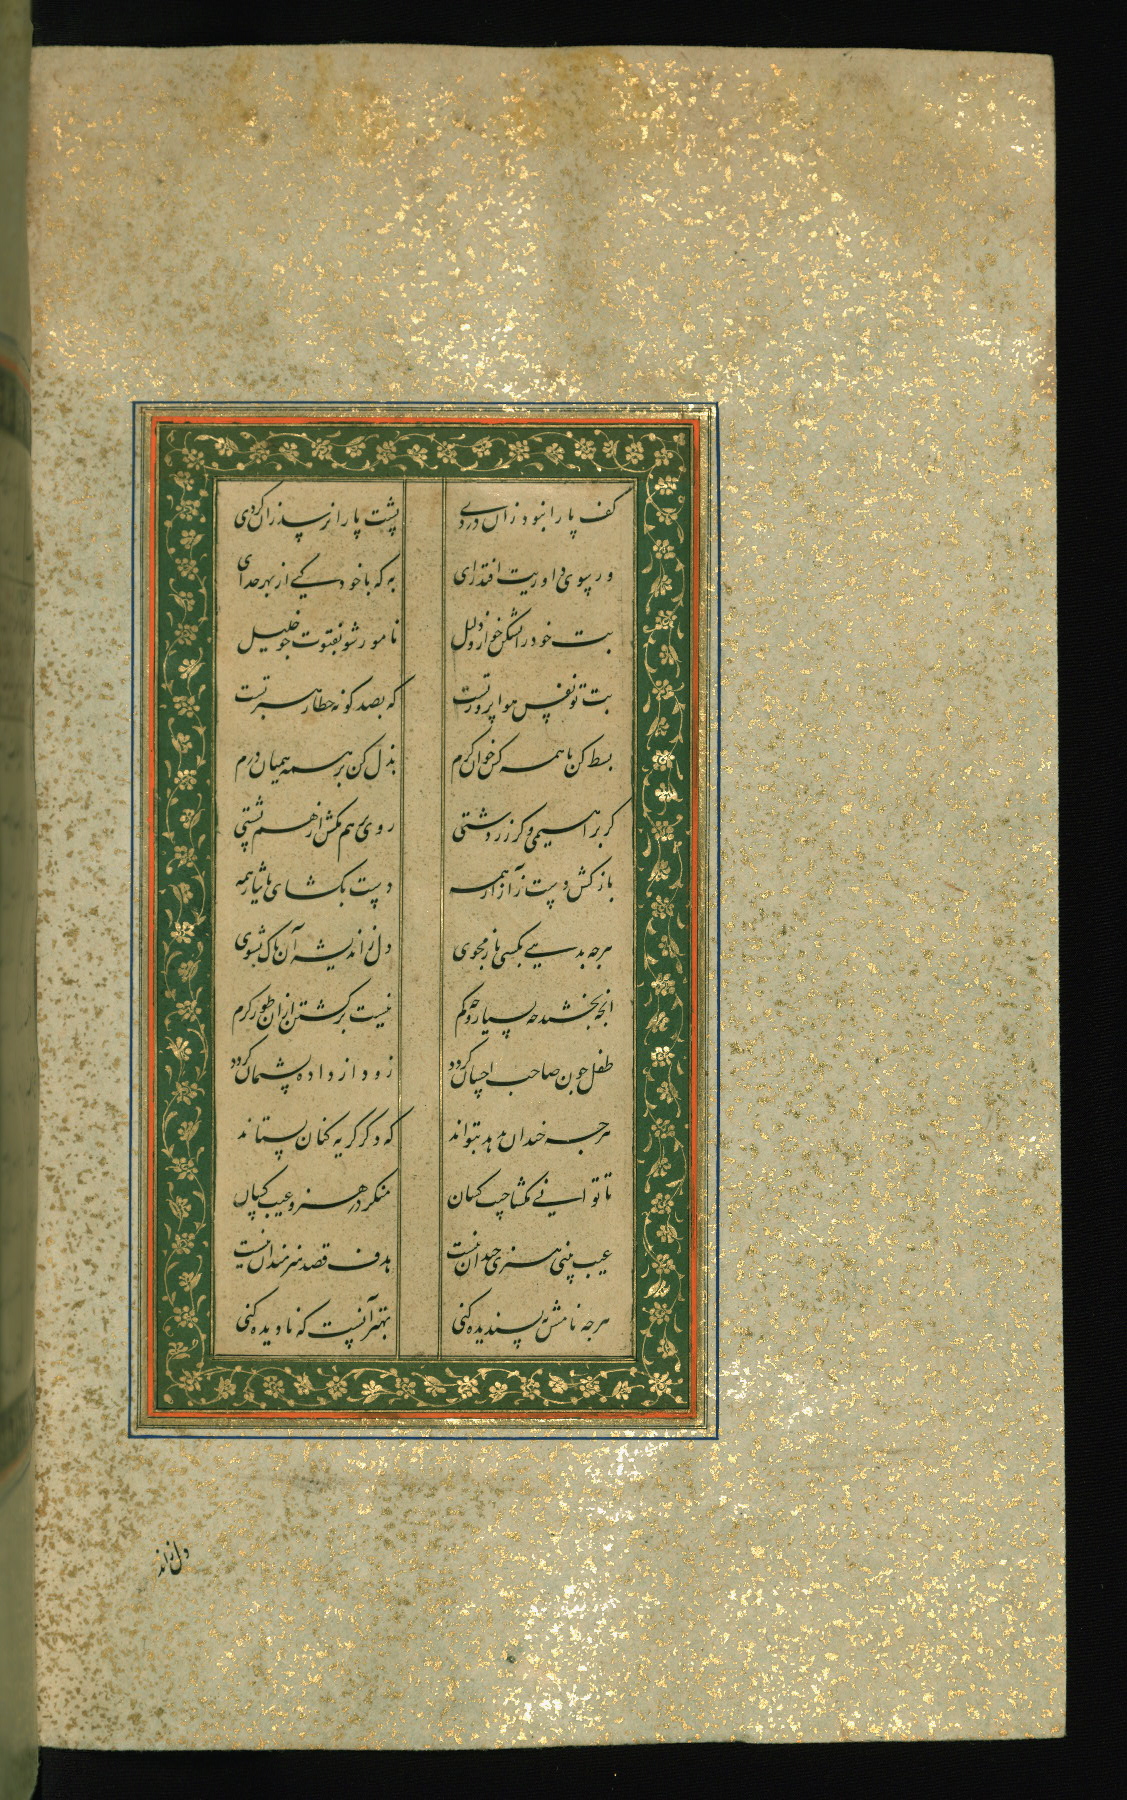 کف پا را نبود زان دردی پشت پا را نرسد زان کردی
ور بسوی داوریت افتد رای به که با خود کنی از بهر خدای
بت خود را بشکن خوار و ذلیل نامور شو بفتوت چو خلیل
بت تو نفس هوا پرور تست که بصد کونه خطا رهبر تست
بسط کن با همه کس خوان کرم بذل کن بر همه همیان درم
کر براهیمی و کر زردشتی روی در هم مکش از هم پشتی
باز کش دست ز آزار همه دست بکشای بایثار همه
هرچه بدهی بکسی باز مجوی دل از اندیشه آن پاک بشوی
انچه بخشند چه بسیار و چه کم نیست برکشتن از ان طور کرم
طفل چون صاحب احسان کردد زود از داده پشیمان کردد
هرچه خندان بدهد بتواند که دکر کریه کنان بستاند
تا توانی مکشا جیب کسان منکر در هنر و عیب کسان
عیب بینی هنری چندان نیست هدف قصد هنرمندان نیست
هرچه نامش نه پسندیده کنی بهتر آنست که نادیده کنی